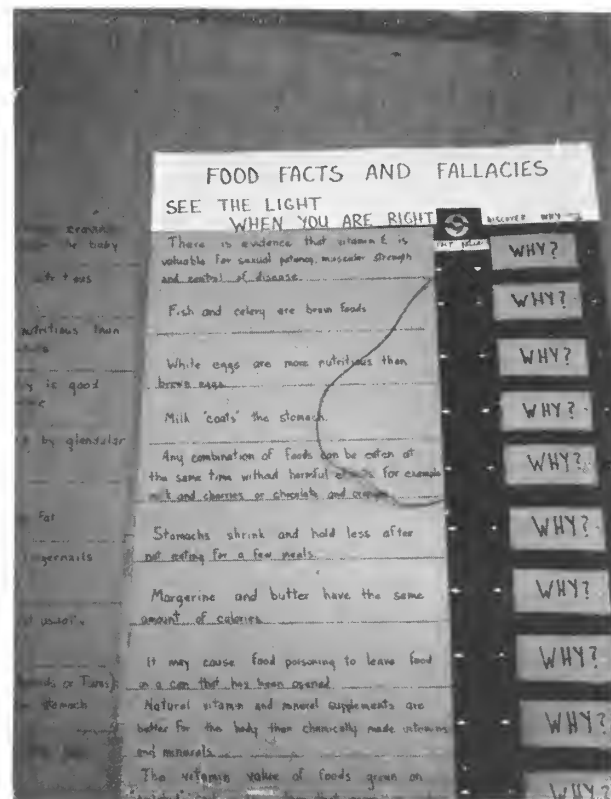 FOOD FACTS AND FALLACIES
SEE THE LIGHT
WHEN YOU ARE RIGHT
DISCOVER WHY
There is evidence that vitamin E is
valuable for sexual potency, muscular strength
and control of disease.
WHY?
Fish and celery are brain foods
WHY?
White eggs are more nutritious than
brown eggs.
WHY?
Milk "coats" the stomach.
WHY?
Any combination of foods can be eaten at
the same time without harmful effects. For example
milk and cherries or chocolate and oranges.
WHY?
Stomachs shrink and hold less after
not eating for a few meals.
WHY?
Margerine and butter have the same
amount of calories.
WHY?
It may cause food poisoning to leave food
in a can that has been opened.
WHY?
Natural vitamin and mineral supplements are
better for the body than chemically made vitamins
and minerals.
WHY?
The vitamin value of foods grown on
WHY?
baby
nutritious than
is good
by glandular
fat
usually
or Tums)
stomach